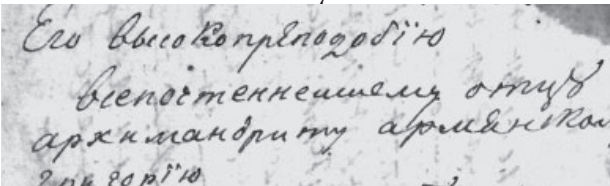 Его высокопреподобїю
всепочтеннейшему отцу
архимандриту армянском
григорїю